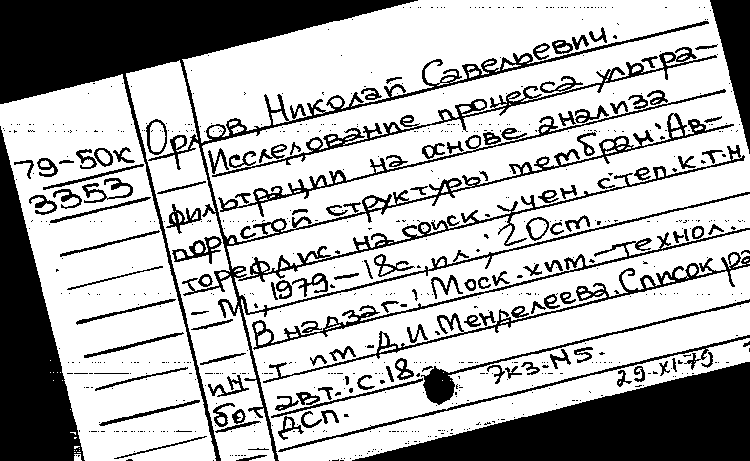 Орлов, Николай Савельевич.
79-50к
3353
Исследование процесса ультра-
фильтрации на основе анализа
пористой структуры мембран: Ав-
тореф. дис. на соиск. учен. степ. к.т.н
- М., 1979. - 18с., ил.; 20 см.
В надзаг.: Моск. хим.-технол.
ин-т им. Д.И. Менделеева. Список ра
бот авт.: с. 18.-
ДСП.
Экз. №5.
29-XI-79